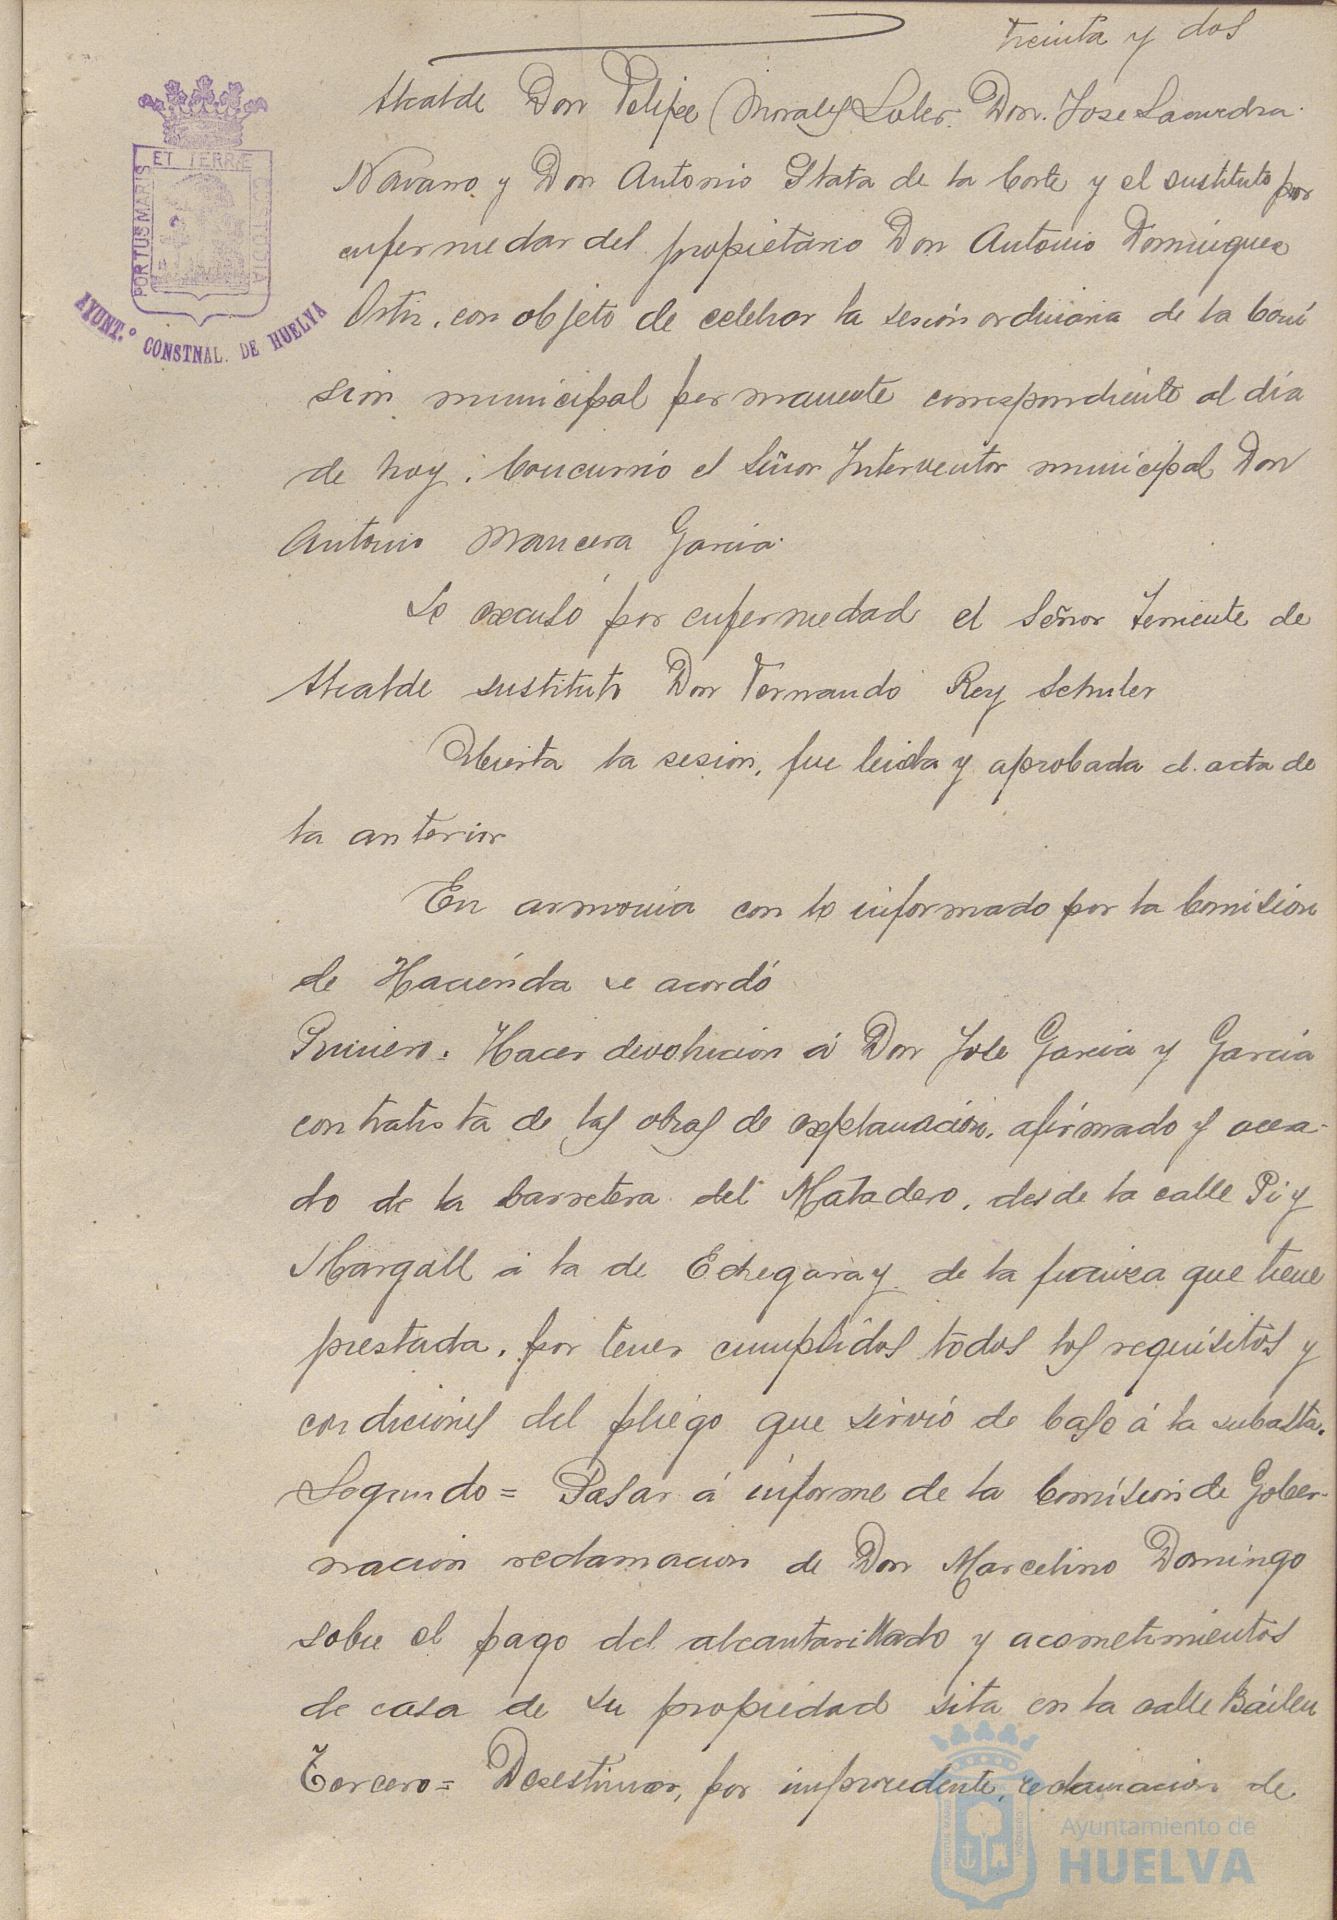 treinta y dos
Alcalde Don Felipe Morales Soler. Don. Jose Saavedra
Navarro y Don Antonio Plata de la Corte y el sustituto por
enfermedar del propietario Don Antonio Dominguez
Ortiz, con objeto de celebrar la sesión ordinaria de la Comi
sion municipal permanente correspondiente al dia
de hoy. Concurrió el Señor Interventor municipal Don
Antonio Mancera Garcia.
Se excusó por enfermedad el Señor Teniente de
Alcalde sustituto Don Fernando Rey Schuler
Abierta la sesion, fue leida y aprobada el acta de
la anterior
En armonia con lo informado por la Comision
de Hacienda se acordó
Primero. Hacer devolucion á Don Jose Garcia y Garcia
contratista de las obras de explanación, afirmado y acera-
do de la Carretera del Matadero, desde la calle Pi y
Margall á la de Echegaray de la fianza que tiene
prestada, por tener cumplidos todos los requisitos y
condiciones del pliego que sirvió de base á la subasta.
Segundo = Pasar á informe de la Comision de Gober-
nacion reclamacion de Don Marcelino Domingo
sobre el pago del alcantarillado y acometimientos
de casa de su propiedad sita en la calle Báilen
Tercero = Desestimar, por improcedente, reclamacion de
PORTUS MARIS ET TERRÆ CUSTODIA
AYUNT.º CONSTNAL. DE HUELVA
Ayuntamiento de
HUELVA